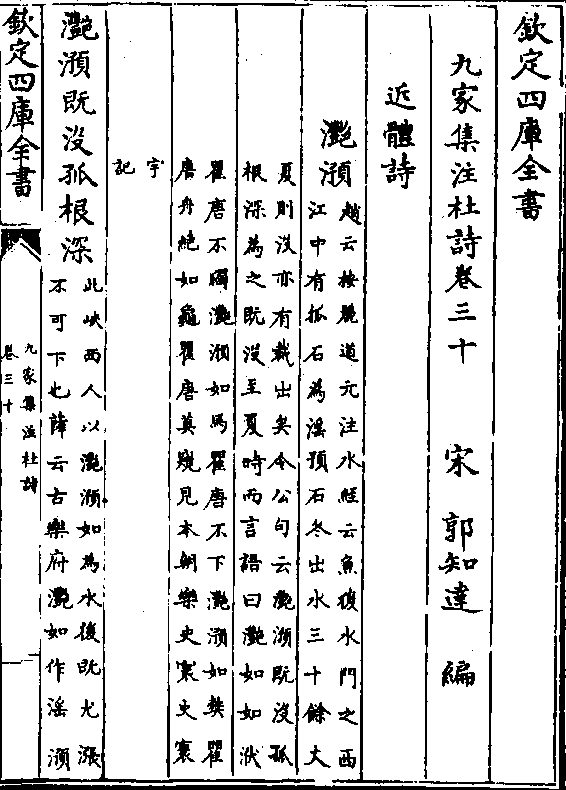 欽定四庫全書
九家集注杜詩卷三十 宋 郭知達 編
近體詩
灩澦
趙云按酈道元注水經云魚復水門之西
江中有孤石為淫預石冬出水三十餘丈
夏則没亦有裁出矣今公句云灩澦既没孤
根深為之既没至夏時而言語曰灩如如洑
瞿唐不觸灩澦如馬瞿唐不下灩澦如樊瞿
唐舟絶如龜瞿唐莫窺見本朝樂史寰史寰
宇
記
灩澦既没孤根深
此峽西人以灩澦如為水後既尤漲
不可下也薛云古樂府灩如作淫澦
欽定四庫全書
九家集注杜詩
卷三十